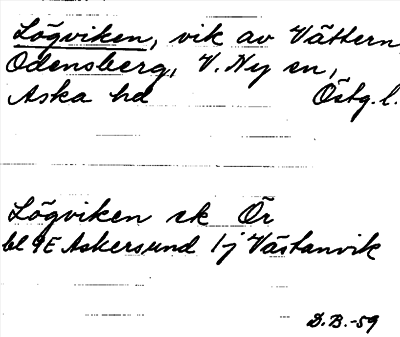 Lögviken, vik av Vättern,
Odensberg, V. Ny sn,
Aska hd Östg. l.
Lögviken ek Ör
bl 9E Askersund 1j Västanvik
D.B.-59